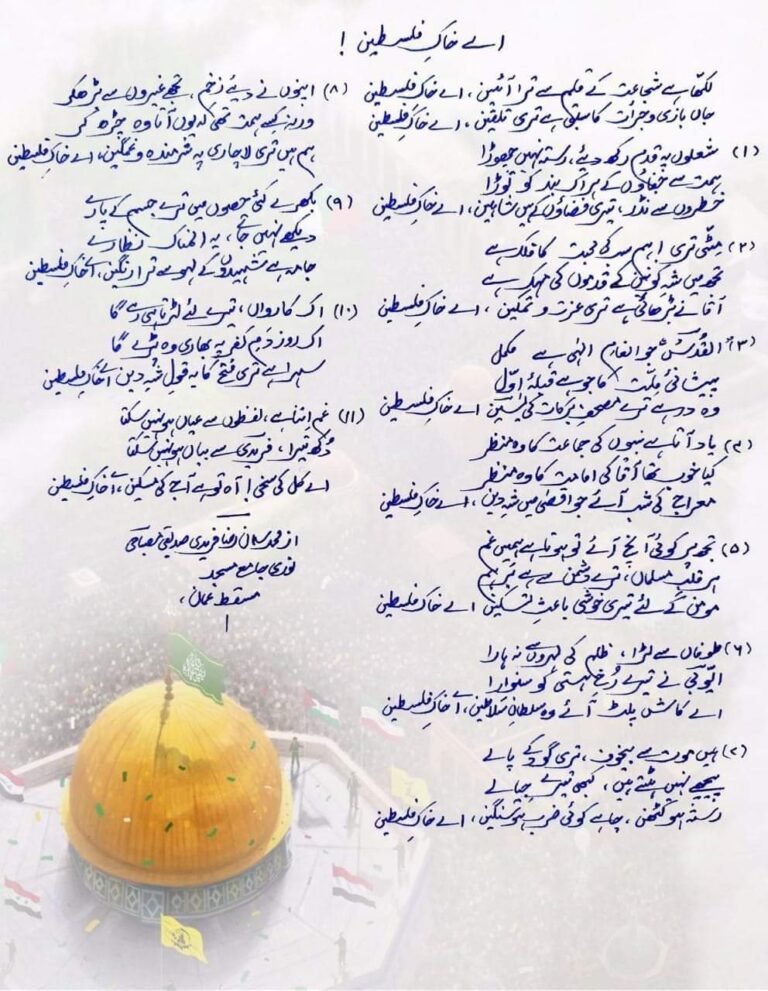 اے خاکِ فلسطین !
لکھا ہے شجاعت کے قلم سے ترا آئین ، اے خاکِ فلسطین
جاں بازی و جرأت کا سبق ہے تری تلقین ، اے خاکِ فلسطین
(۱) شعلوں پہ قدم رکھ دیئے، رستہ نہیں چھوڑا
ہمت سے جفاؤں کے ہر اک بند کو توڑا
خطروں سے نڈر، تیری فضاؤں کے ہیں شاہین ، اے خاکِ فلسطین
(۲) مٹی تری ! ہم سب کی محبت کا فلک ہے
تجھ میں شہِ کونین کے قدموں کی مہک ہے
آقا نے بڑھائی ہے تری عزت و تمکین ، اے خاکِ فلسطین
(۳) "القدس" جو انعامِ الٰہی ہے مکمل
پیشانئ ملت کا جو ہے قبلۂ اوّل
وہ در ہے ترے مصحفِ برکات کی یٰسین اے خاکِ فلسطین
(۴) یاد آتا ہے نبیوں کی جماعت کا وہ منظر
کیا خوب تھا آقا کی امامت کا وہ منظر
معراج کی شب آئے جو اقصیٰ میں شہِ دین ، اے خاکِ فلسطین
(۵) تجھ پر کوئی آنچ آئے تو ہوتا ہے ہمیں غم
ہر قلبِ مسلماں، ترے دشمن سے ہے برہم
مومن کے لئے تیری خوشی باعثِ تسکین اے خاکِ فلسطین
(۶) طوفاں سے لڑا ، ظلم کی لہروں سے نہ ہارا
ایّوبی نے تیرے رُخِ ہستی کو سنوارا
اے کاش پلٹ آئے وہ سلطانِ سلاطین، اے خاکِ فلسطین
(۷) ہیں موت سے بیخوف ، تری گود کے پالے
پیچھے نہیں ہٹتے ہیں ، کبھی تیرے جیالے
رستہ ہو کٹھن ، چاہے کوئی ضرب ہو سنگین، اے خاکِ فلسطین
(۸) اپنوں نے دیئے زخم ، تجھے غیروں سے بڑھ کر
ورنہ کسے ہمت تھی کہ یوں آتا وہ چڑھ کر
ہم ہیں تری لاچاری پہ شرمندہ و غمگین، اے خاکِ فلسطین
(۹) بکھرے کئی حصوں میں ترے جسم کے پارے
دیکھے نہیں جاتے ، یہ المناک نظارے
جامہ ہے شہیدوں کے لہو سے ترا رنگین، اے خاکِ فلسطین
(۱۰) اک کارواں ، تیرے لئے لڑتا ہی رہے گا
اک روز دَمِ کفر پہ بھاری وہ پڑے گا
سہرا ہے تری فتح کا یہ قولِ شہِ دین اے خاکِ فلسطین
(۱۱) غم اتنا ہے، لفظوں سے عیاں ہو نہیں سکتا
دُکھ تیرا ، فریدی سے بیاں ہو نہیں سکتا
اے کل کی سخی ! آہ تو ہے آج کی مسکین، اے خاکِ فلسطین
از محمد سلمان رضا فریدی صدیقی مصباحی
نوری جامع مسجد
مسقط عمان ،